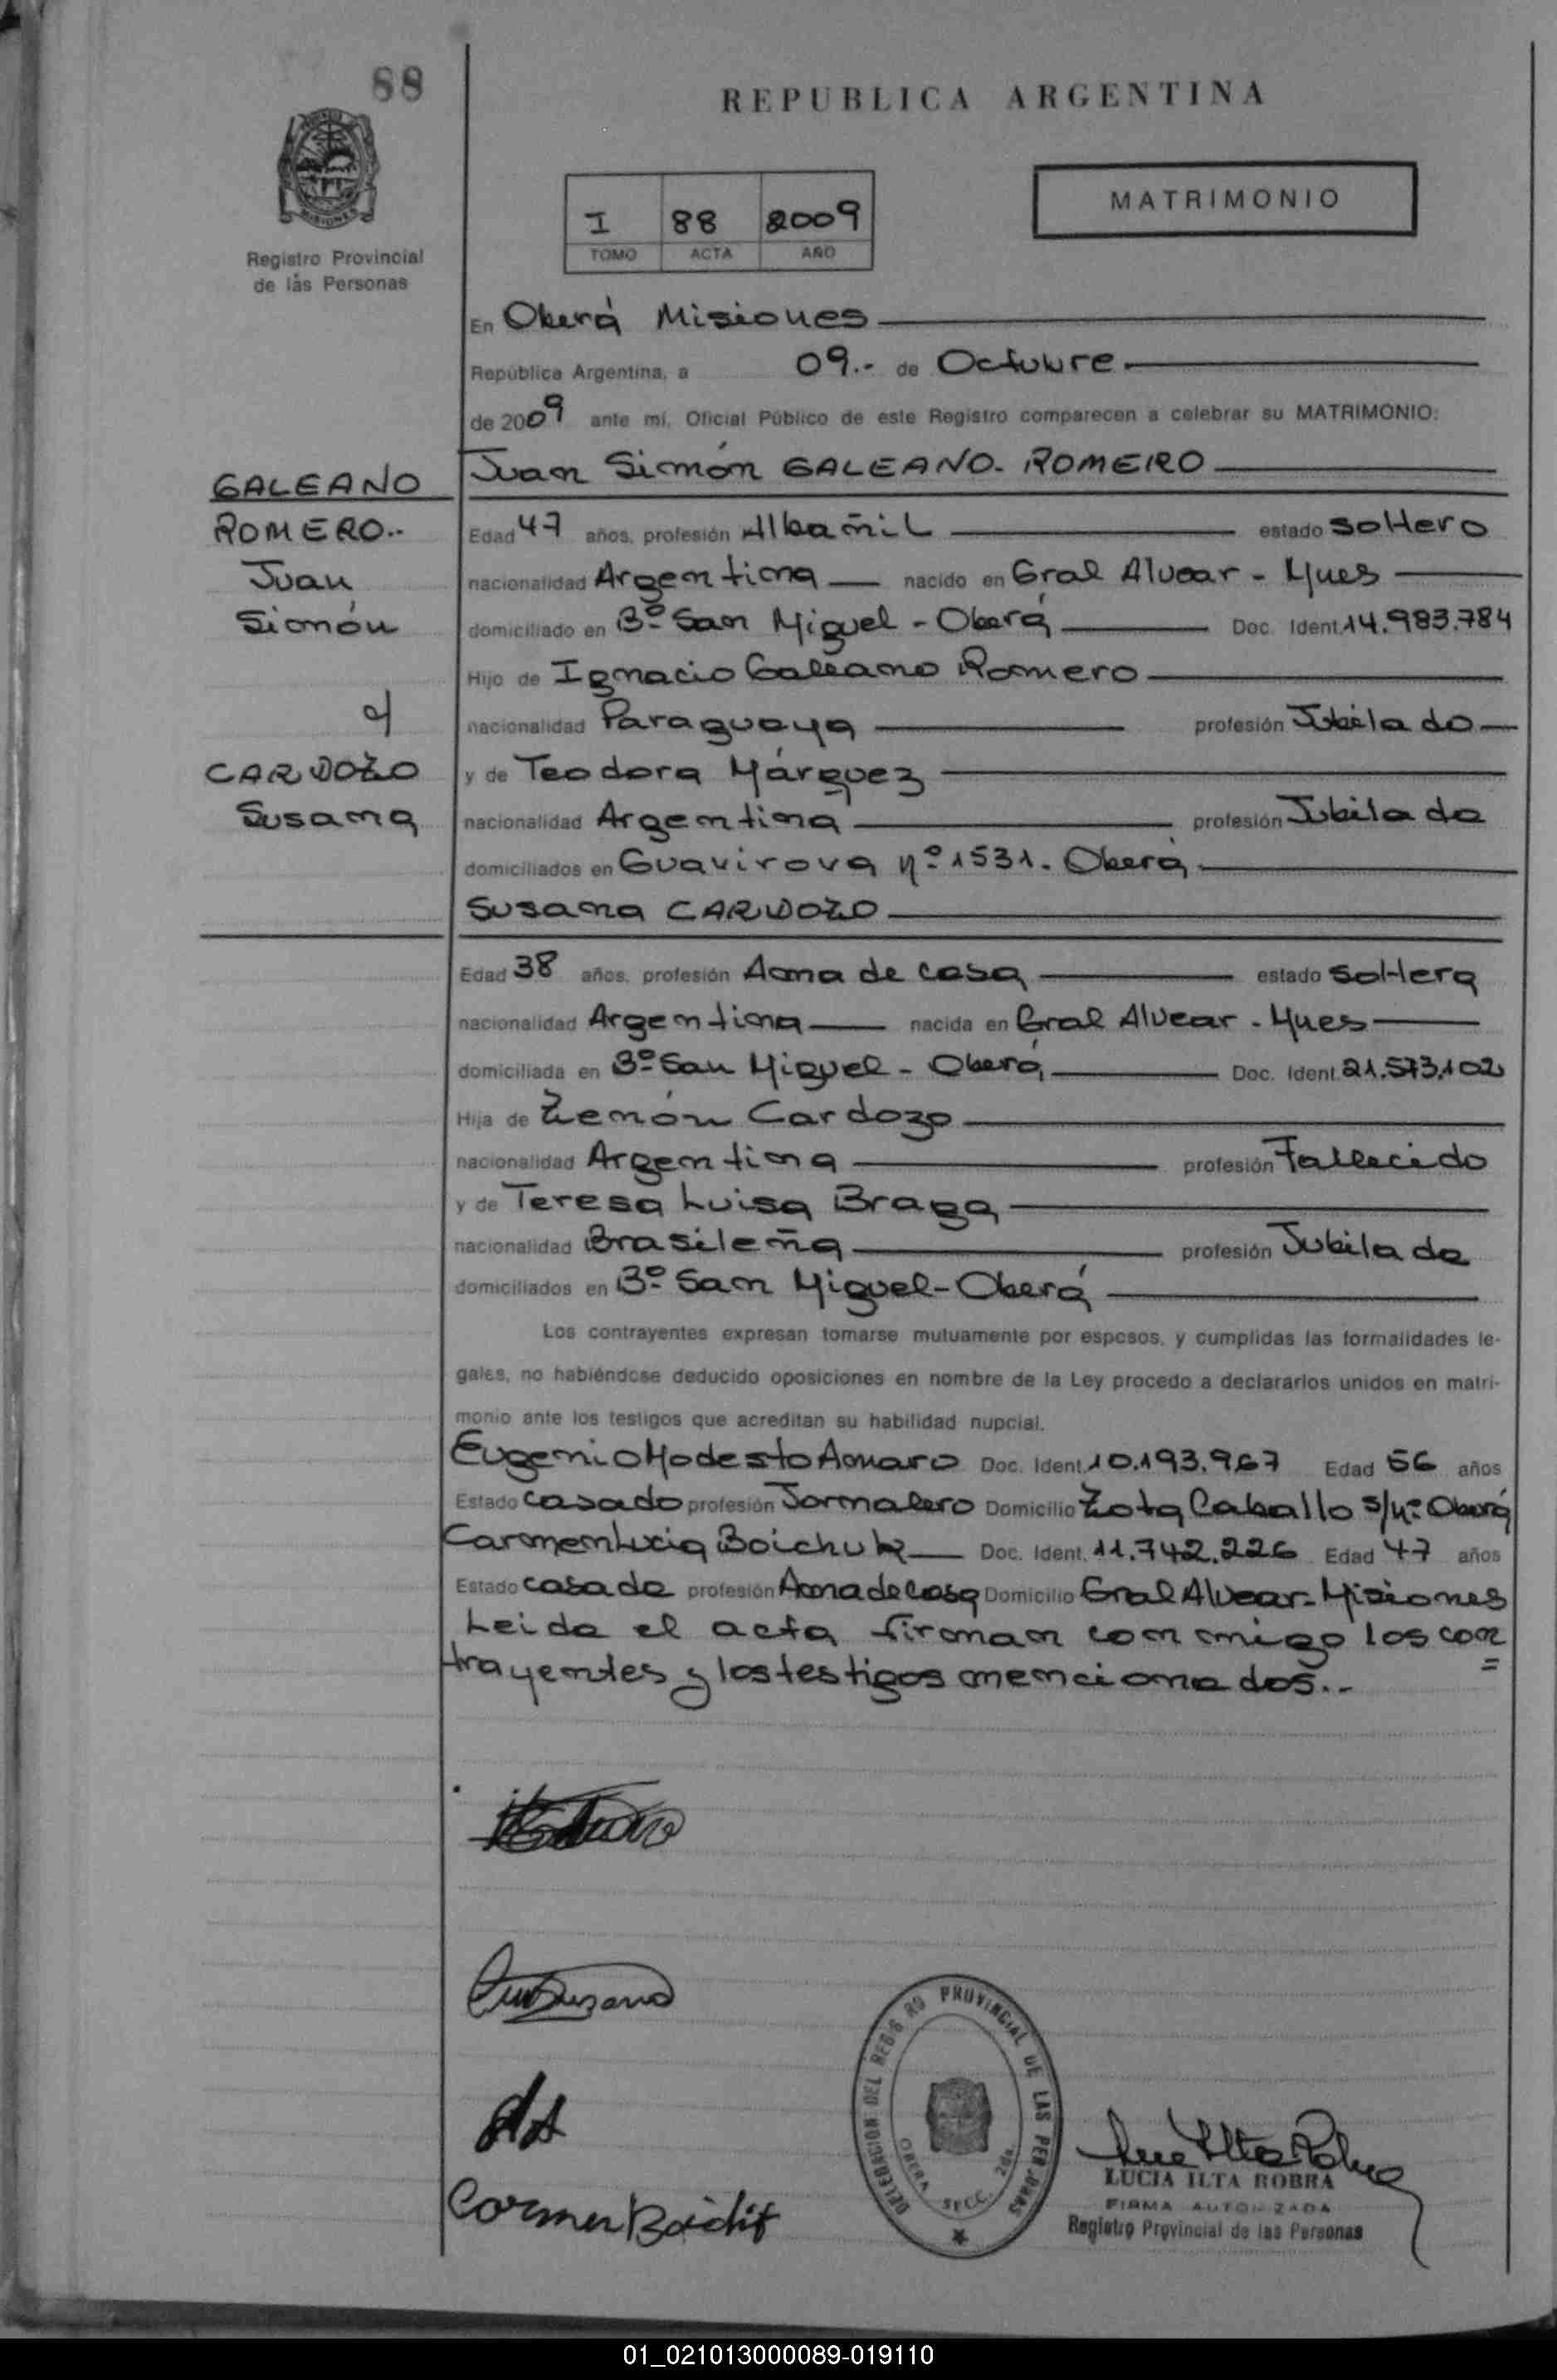 88
REPUBLICA ARGENTINA
MISIONES
Registro Provincial
de las Personas
I 88 2009
TOMO ACTA AÑO
MATRIMONIO
En Oberá Misiones
República Argentina, a 09.- de Octubre.
de 2009 ante mí, Oficial Público de este Registro comparecen a celebrar su MATRIMONIO:
Juan Simón GALEANO-ROMERO
GALEANO
ROMERO..
Juan
Simón
c/
CARDOZO
Susana
Edad 47 años, profesión Albañil estado soltero
nacionalidad Argentina nacido en Gral Alvear - Mnes
domiciliado en Bº San Miguel - Oberá Doc. Ident. 14.983.784
Hijo de Ignacio Galeano Romero
nacionalidad Paraguaya profesión Jubilado
y de Teodora Márquez
nacionalidad Argentina profesión Jubilada
domiciliados en Guavirova nº 1531. Oberá
Susana CARDOZO
Edad 38 años, profesión Ama de casa estado soltera
nacionalidad Argentina nacida en Gral Alvear - Mnes
domiciliada en Bº San Miguel - Oberá Doc. Ident. 21.573.102
Hija de Zenón Cardozo
nacionalidad Argentina profesión Fallecido
y de Teresa Luisa Braga
nacionalidad Brasileña profesión Jubilada
domiciliados en Bº San Miguel-Oberá
Los contrayentes expresan tomarse mutuamente por esposos, y cumplidas las formalidades le-
gales, no habiéndose deducido oposiciones en nombre de la Ley procedo a declararlos unidos en matri-
monio ante los testigos que acreditan su habilidad nupcial.
Eugenio Modesto Amaro Doc. Ident. 10.193.967 Edad 56 años
Estado casado profesión Jornalero Domicilio Zota Caballo s/nº Oberá
Carmen Lucia Boichuk Doc. Ident. 11.742.226 Edad 47 años
Estado casada profesión Ama de casa Domicilio Gral Alvear-Misiones
Leida el acta firman conmigo los con
=
trayentes y los testigos mencionados..
Carmen
DELEGACION DEL REGISTRO PROVINCIAL DE LAS PERSONAS
OBERA SECC. 2da.
LUCIA ILTA ROBRA
FIRMA AUTORIZADA
Registro Provincial de las Personas
01_021013000089-019110